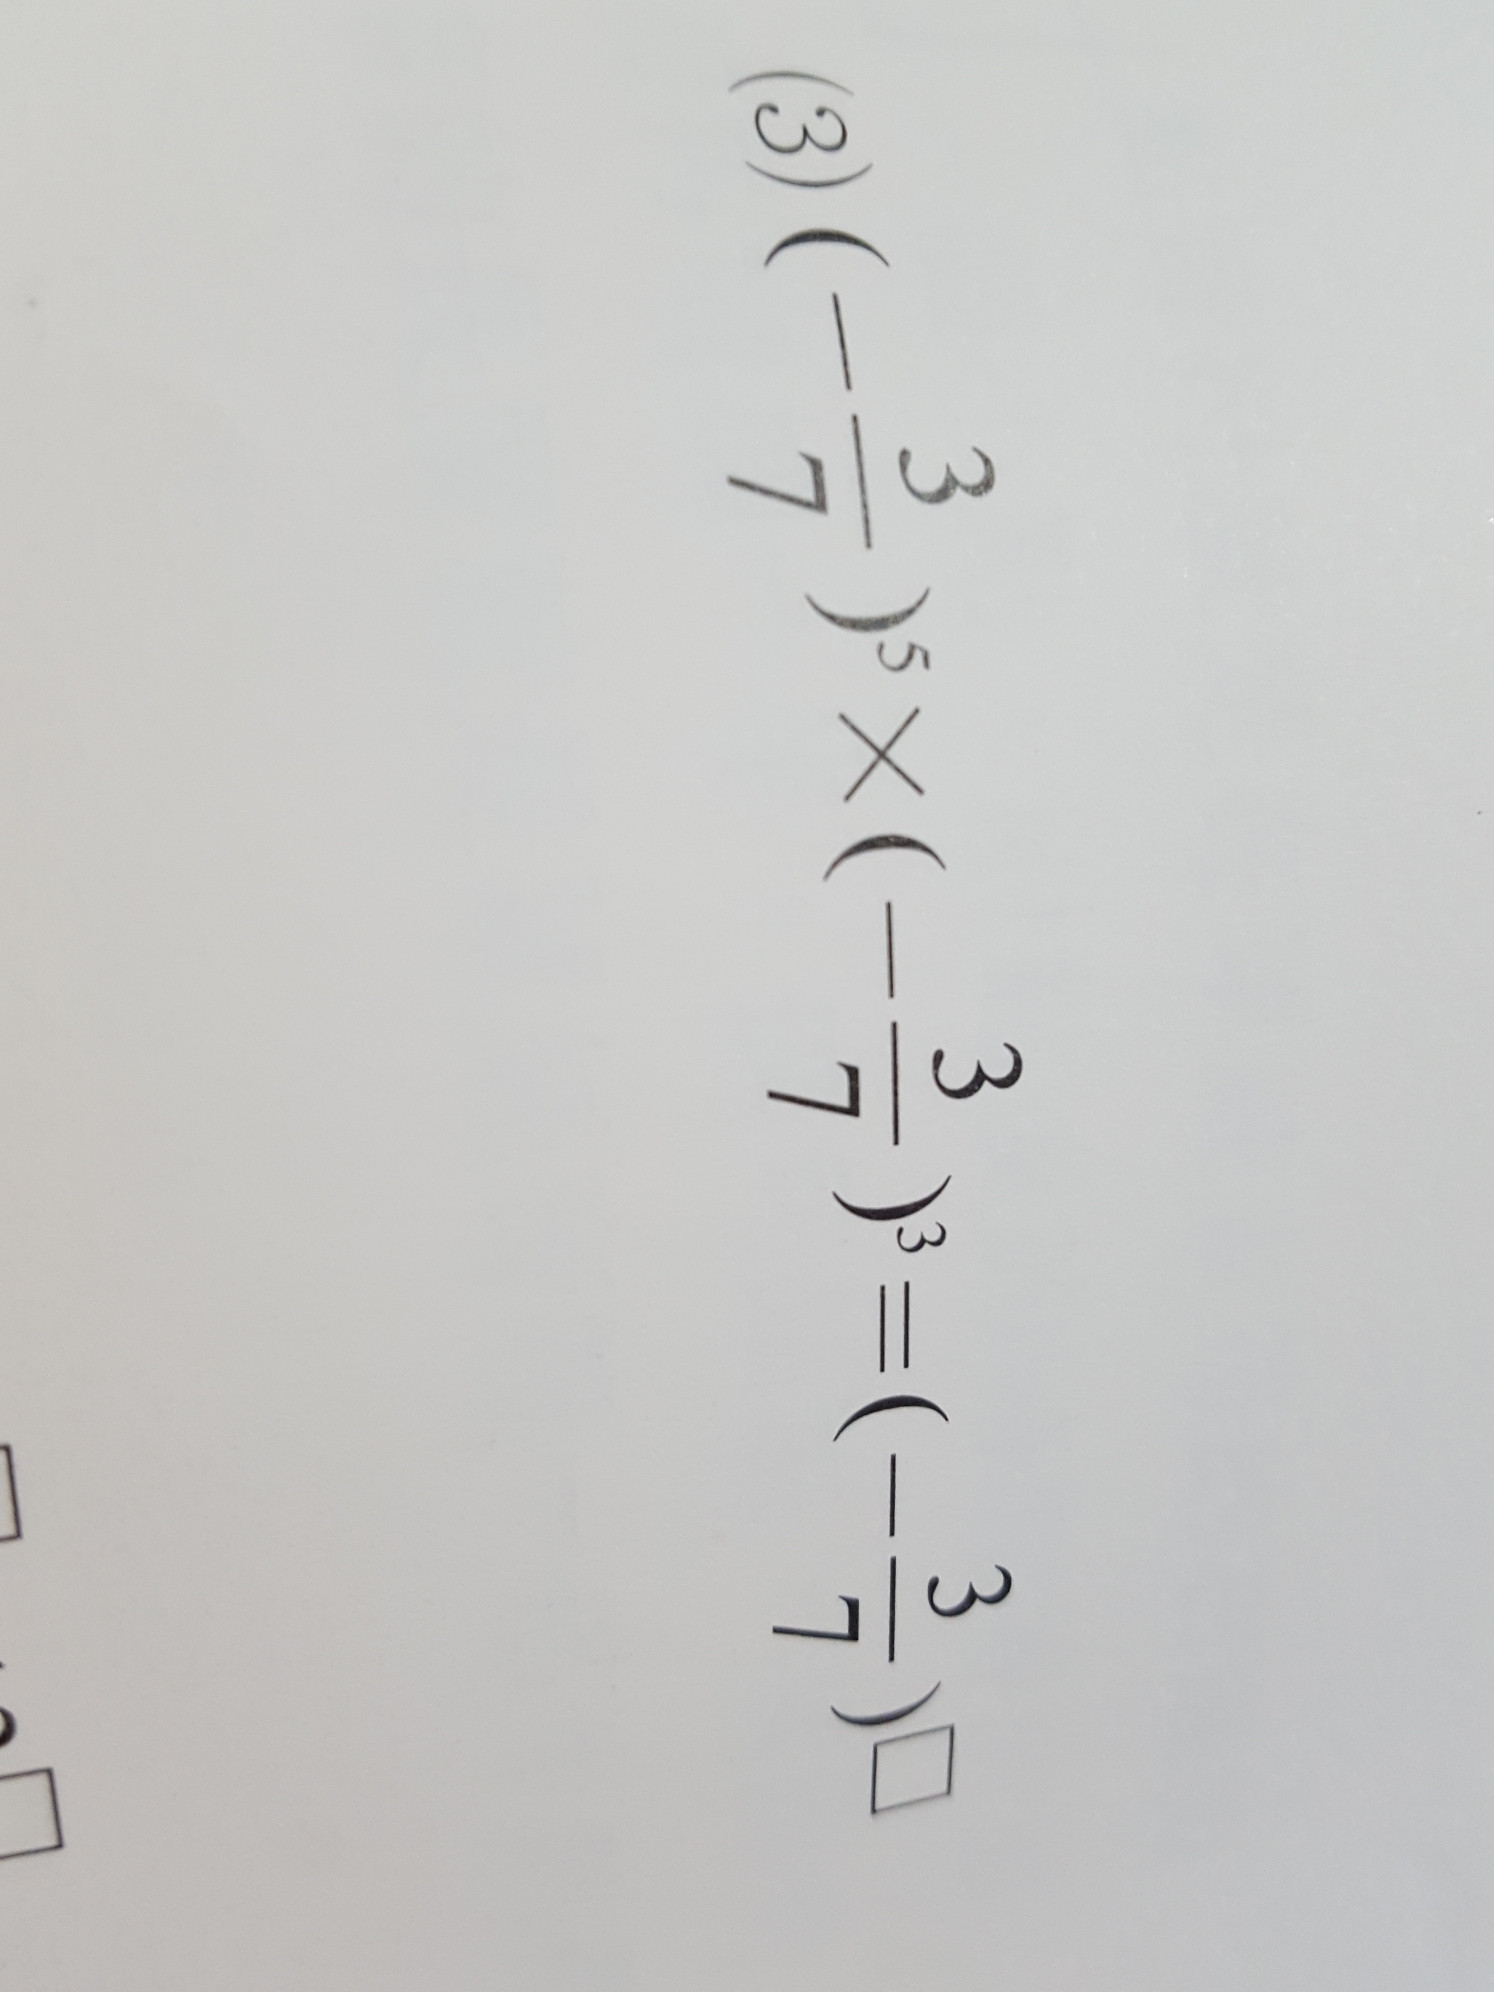 (3) (-3/7)⁵ × (-3/7)³ = (-3/7)^□